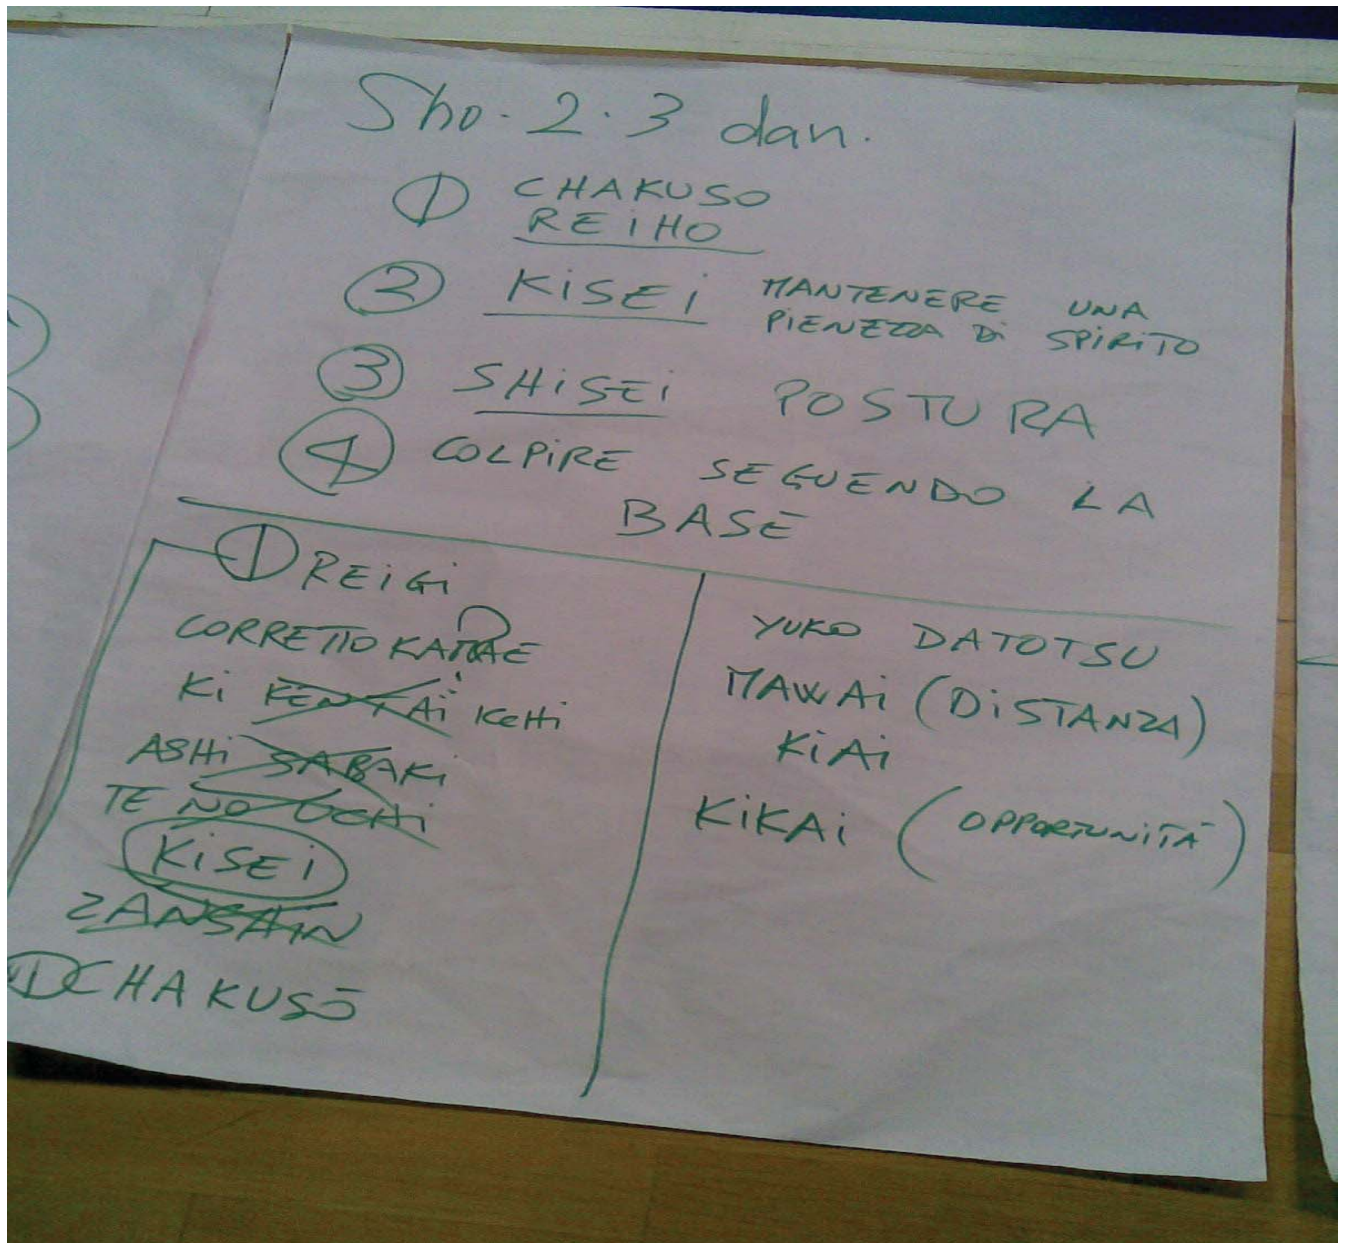 Sho. 2. 3 dan.
① CHAKUSO
REIHO
② KISEI MANTENERE UNA
PIENEZZA DI SPIRITO
③ SHISEI POSTURA
④ COLPIRE SEGUENDO LA
BASE
① REIGI
CORRETTO KAMAE
KI KENTAI ICCHI
ASHI SABAKI
TE NO UCHI
KISEI
ZANSHIN
① CHAKUSŌ
YUKO DATOTSU
MAWAI (DISTANZA)
KIAI
KIKAI (OPPORTUNITÀ)